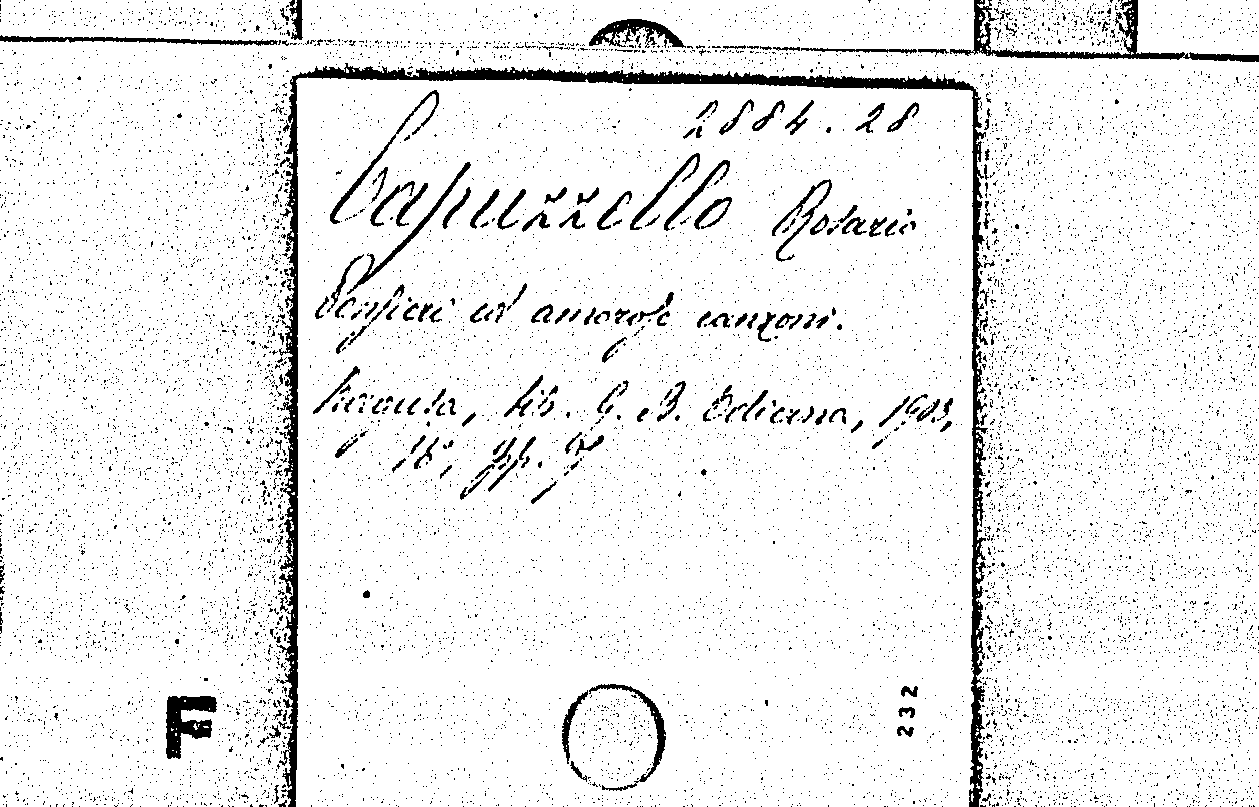 2884.28
Capuzzello Rosario
Pensieri ed amorose canzoni.
Ragusa, tip. G. B. Odierna, 1903,
16°, pp. 7
F
232